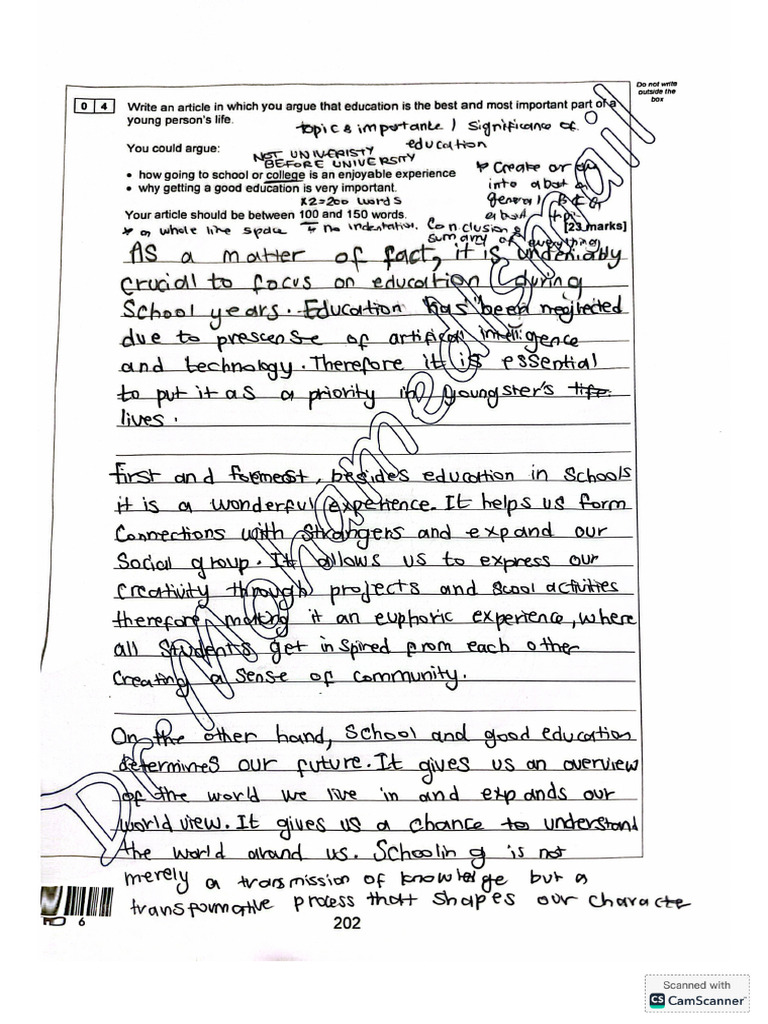 Do not write
outside the
box
0 4 Write an article in which you argue that education is the best and most important part of a
young person's life.
topic & importance / significance of
education
You could argue:
NOT UNIVERISTY
BEFORE UNIVERSITY
• how going to school or college is an enjoyable experience
• why getting a good education is very important.
* Create or
into about
general
x2=200 words
Your article should be between 100 and 150 words.
[23 marks]
* a whole line space no indentation Conclusion
summary of everything
As a matter of fact, it is undeniably
crucial to focus on education during
School years. Education has been neglected
due to prescense of artifical intelligence
and technology. Therefore it is essential
to put it as a priority in youngster's life
lives.
first and foremost, besides education in Schools
it is a wonderful experience. It helps us form
Connections with Strangers and expand our
Social group. It allows us to express our
Creativity through projects and scool activities
therefore, making it an euphoric experience, where
all Students get inspired from each other
creating a sense of community.
On the other hand, School and good education
determines our future. It gives us an overview
of the world we live in and expands our
world view. It gives us a chance to understand
the world around us. Schooling is not
merely a transmission of knowledge but a
transformative process that shapes our characte
6
202
Dr. Mohamed Ismail
Scanned with
CS CamScanner